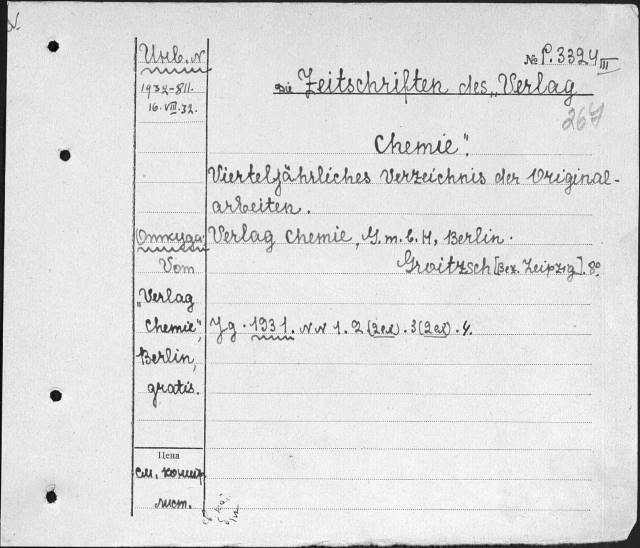 Инв. N
1932-811.
16.VIII.32.
№ P.3324 III
Die Zeitschriften des „Verlag
267
Chemie".
Vierteljährliches Verzeichnis der Original-
arbeiten.
Откуда
Verlag Chemie, G.m.b.H, Berlin.
Vom
Groitzsch [Bez. Leipzig]. 8°
„Verlag
Chemie",
Jg. 1931. NN 1. 2 (2ex). 3 (2ex). 4.
Berlin,
gratis.
Цена
см. контр.
лист.